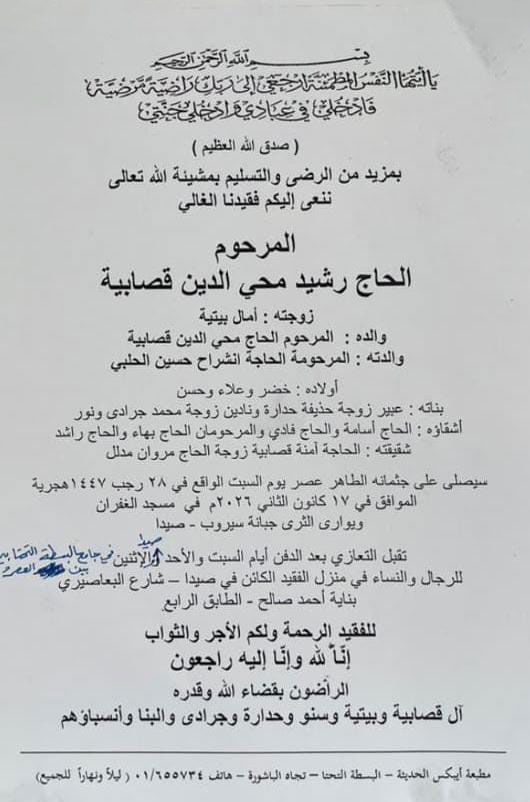 بسم الله الرحمن الرحيم
يا أيتها النفس المطمئنة ارجعي إلى ربك راضية مرضية
فادخلي في عبادي وادخلي جنتي
( صدق الله العظيم )
بمزيد من الرضى والتسليم بمشيئة الله تعالى
ننعى إليكم فقيدنا الغالي
المرحوم
الحاج رشيد محي الدين قصابية
زوجته : أمال بيتية
والده : المرحوم الحاج محي الدين قصابية
والدته : المرحومة الحاجة انشراح حسين الحلبي
أولاده : خضر وعلاء وحسن
بناته : عبير زوجة حذيفة حدارة ونادين زوجة محمد جرادى ونور
أشقاؤه : الحاج أسامة والحاج فادي والمرحومان الحاج بهاء والحاج راشد
شقيقته : الحاجة آمنة قصابية زوجة الحاج مروان مدلل
سيصلى على جثمانه الطاهر عصر يوم السبت الواقع في ٢٨ رجب ١٤٤٧هجرية
الموافق في ١٧ كانون الثاني ٢٠٢٦م في مسجد الغفران
ويوارى الثرى جبانة سيروب - صيدا
صيدا
تقبل التعازي بعد الدفن أيام السبت والأحد والإثنين في جامع البسطة التحتا
بين العصر
للرجال والنساء في منزل الفقيد الكائن في صيدا – شارع البعاصيري
بناية أحمد صالح - الطابق الرابع
للفقيد الرحمة ولكم الأجر والثواب
إنّا لله وإنّا إليه راجعون
الراضون بقضاء الله وقدره
آل قصابية وبيتية وسنو وحدارة وجرادى والبنا وأنسباؤهم
مطبعة أيبكس الحديثة – البسطة التحتا – تجاه الباشورة - هاتف ٠١/٦٥٥٧٣٤ ( ليلاً ونهاراً للجميع)